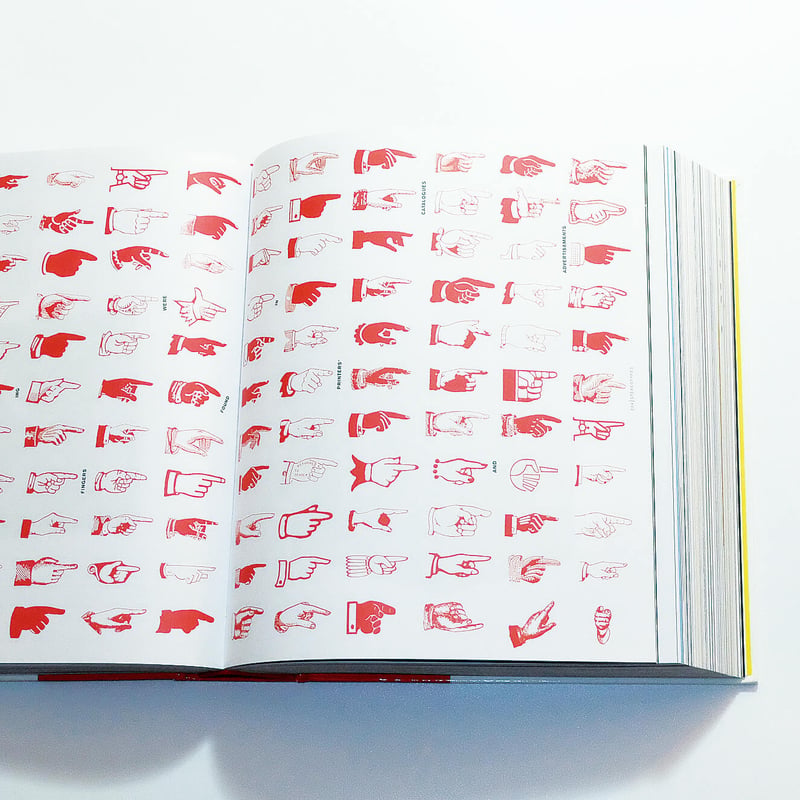 ING
FINGERS
WERE
FOUND
IN
PRINTERS'
CATALOGUES
AND
ADVERTISEMENTS